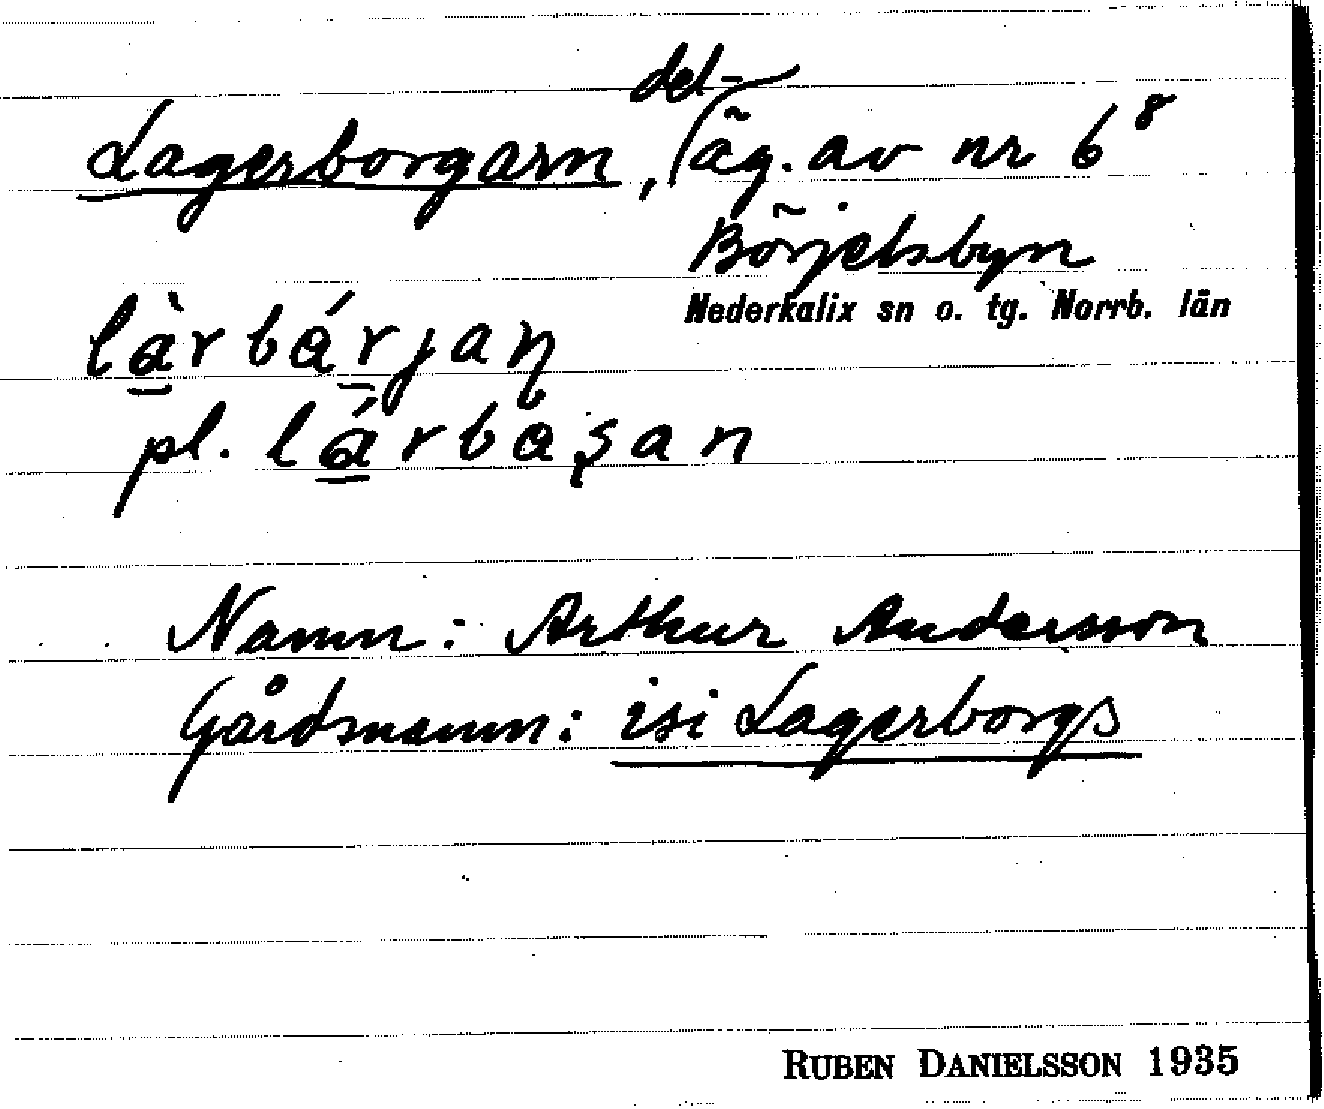 Lagerborgarn, del-äg. av nr 6⁸
Börjelsbyn
Nederkalix sn o. tg. Norrb. län
làrbárjaṇ
pl. lárbaşan
Namn: Arthur Andersson
Gårdsnamn: isi Lagerborgs
RUBEN DANIELSSON 1935